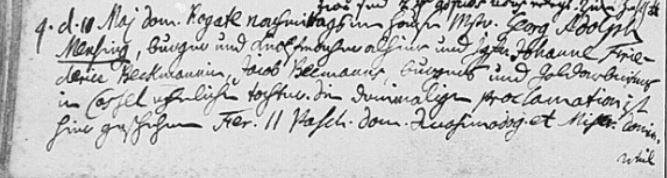 9. d. 10 Maj dom. Rogate nachmittags im Hause Mstr. Georg Adolph
Mensing, burger und alhier und Jgfr. Johanne Frie-
derice Beckmannin, Jacob Beckmanns, burgers und Goldarbeiters
in Cassel ehrliche tochter. Die dreimalige proclamation ist
hier geschehen Fer. II Pasch. dom. Quasimodog. et Miser. Domi.